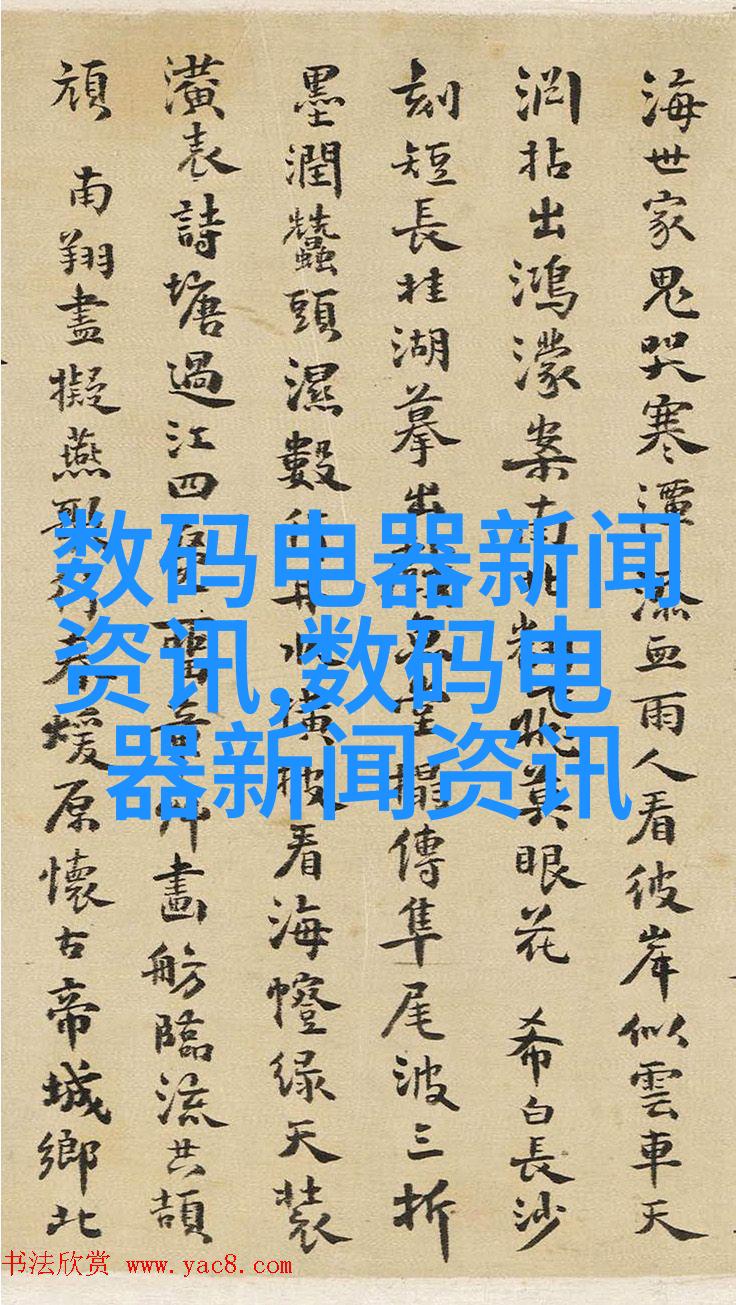 海世家鬼哭寒潭添血雨人看彼岸似雲車天
拈出鴻濛案南北眺莫眼花 希白長沙
刻短長桂湖摹出傳隼尾波三折
墨潤蠶頭濕數行橫披看海幢綠天裝
潢表詩塘過江四音畫舫臨流共頡
頏 南翔盡擬燕春煖原懷古帝城鄉北
数码电器新闻
资讯,数码电
器新闻资讯
书法欣赏 www.yac8.com